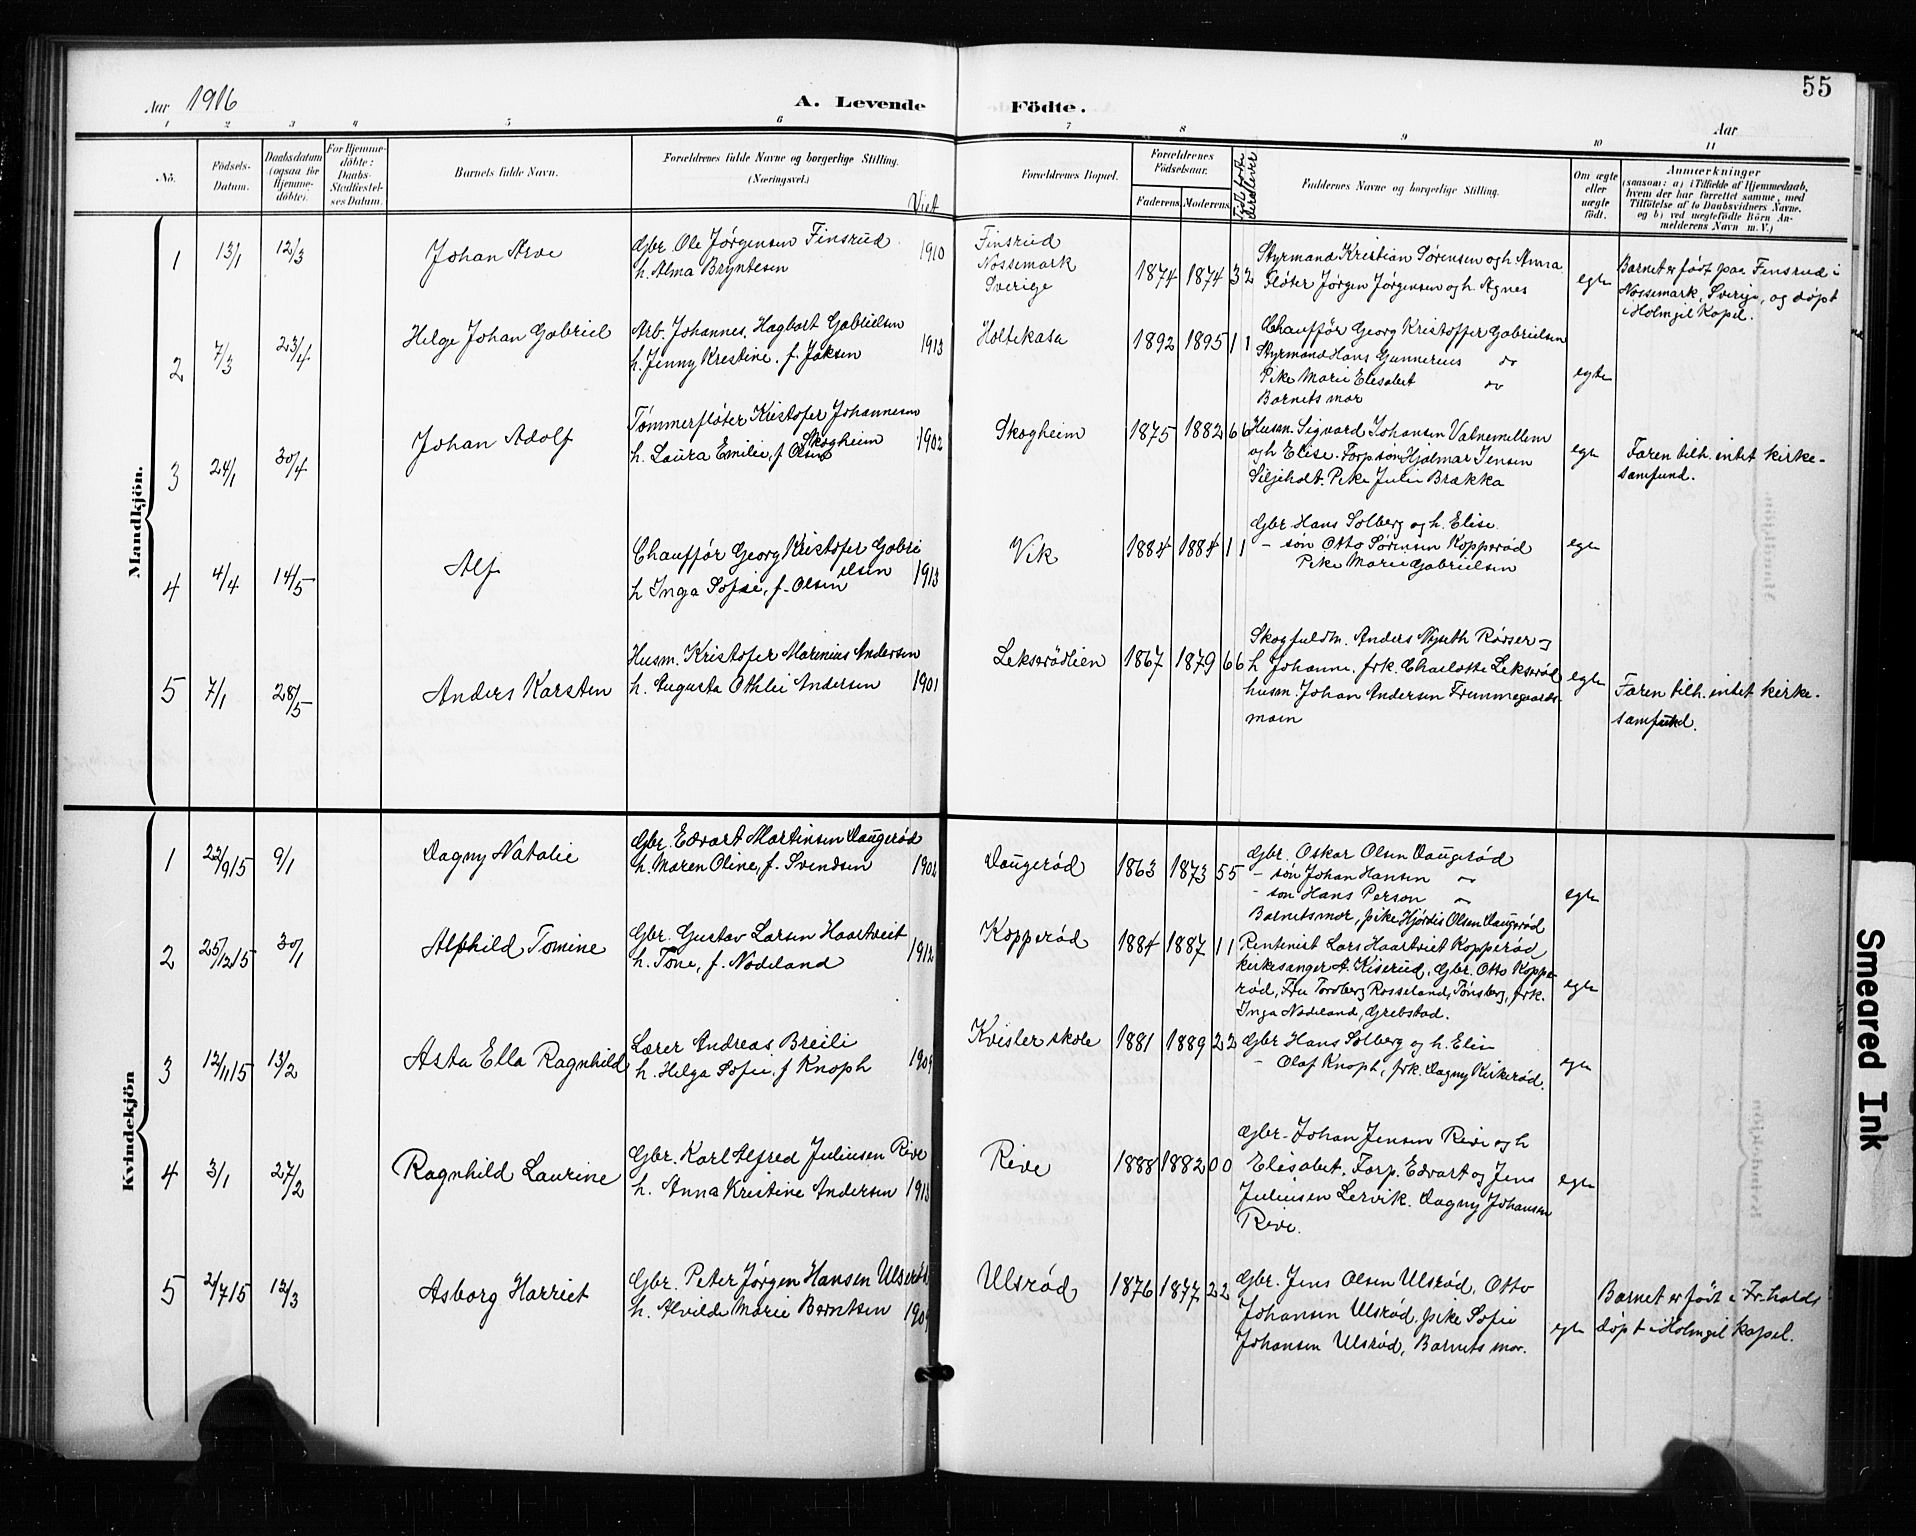 55
Aar 1916
A. Levende Födte.
Aar
1 2 3 4 5 6 7 8 9 10 11
No.
Födsels-Datum.
Daabsdatum (ogsaa for Hjemme-döbte).
For Hjemme-döbte: Daabs-Stadfæstel-ses Datum.
Barnets fulde Navn.
Forældrenes fulde Navne og borgerlige Stilling. (Næringsvei.)
Viet
Forældrenes Bopæl.
Forældrenes Födselsaar.
Faderens. Moderens.
Faddernes Navne og borgerlige Stilling.
Om ægte eller uægte födt.
Anmærkninger
(saasom: a) i Tilfælde af Hjemmedaab, hvem der har forrettet samme, med Tilföielse af to Daabsvidners Navne, og b) ved uægtefödte Börn An-melderens Navn m. V.)
Mandkjön.
1 13/1 12/3 Johan Arve
Gbr. Ole Jørgensen Finsrud
h. Alma Bryntesen
1910
Finsrud
Nossemark
Sverige
1874 1874 3 2
Styrmand Kristian Sørensen og h. Anna
Fløter Jørgen Jørgensen og h. Agnes
egte
Barnet er født paa Finsrud i
Nossemark, Sverige, og døpt
i Holmgil Kapel.
2 7/3 23/4 Helge Johan Gabriel
Arb. Johannes Hagbart Gabrielsen
h. Jenny Kristine f. Jaksen
1913
Holtekasa
1892 1895 1 1
Chauffør Georg Kristoffer Gabrielsen
Styrmand Hans Gunnerius do
Pike Marie Elisabet do
Barnets mor
egte
3 24/1 30/4 Johan Adolf
Tømmerfløter Kristofer Johannesen
Skogheim
h. Laura Emilie, f. Olsen
1902
Skogheim
1875 1882 6 6
Husm. Sigvard Johansen Vatnemellem
og h Elise. Forp. søn Hjalmar Jensen
Siljeholt. Pike Julie Brække
egte
Faren tilh. intet kirke-
samfund.
4 4/4 14/5 Alf
Chauffør Georg Kristofer Gabri
elsen
h Inga Sofie, f. Olsen
1913
Vik
1884 1884 1 1
Gbr. Hans Solberg og h. Elise
- søn Otto Sørensen Kopperød
Pike Marie Gabrielsen
egte
5 7/1 28/5 Anders Karsten
Husm. Kristofer Marenius Andersen
h. Augusta Othlie Andersen
1901
Lekserødlien
1867 1879 6 6
Skogfuldm. Anders Nyseth Rørser og
h Johanne, frk. Charlotte Lekserød
husm. Johan Andersen Frammegaards-
moen
egte
Faren tilh. intet kirke-
samfund.
Kvindekjön
1 22/9 15 9/1 Dagny Natalie
Gbr. Edvart Martinsen Daugerød
h. Maren Oline, f. Svendsen
1902
Daugerød
1863 1873 5 5
Gbr. Oskar Olsen Daugerød
- søn Johan Hansen do
- søn Hans Person do
Barnets mor, pike Hjørdis Olsen Daugerød
egte
2 25/12 15 30/1 Alfhild Tomine
Gbr. Gustav Larsen Haartveit
h. Tone, f. Nodeland
1912
Kopperød
1884 1887 1 1
Rentenist Lars Haartveit Kopperød
kirkesanger A. Kiserud, Gbr. Otto Koppe-
rød, Fru Torsberg Rosseland, Tønsberg, frk.
Inga Nodeland, Grebstad.
egte
3 12/11 15 13/2 Asta Ella Ragnhild
Lærer Andreas Breili
h. Helga Sofie, f Knoph
1909
Kvisler skole
1881 1889 2 2
Gbr. Hans Solberg og h. Elin
- Olaf Knoph, frk. Dagny Kirkerød.
egte
4 3/1 27/2 Ragnhild Laurine
Gbr. Karl Alfred Juliusen Rive
h. Anna Kristine Andersen
1915
Rive
1888 1882 0 0
Gbr. Johan Jensen Rive og h
Elisabet. Forp. Edvart og Jens
Juliusen Lervik. Dagny Johansen
Rive.
egte
5 2/7 15 12/3 Asborg Harriet
Gbr. Peter Jørgen Hansen Ulsrød
h. Alvilde Marie Berntsen
1909
Ulsrød
1876 1877 2 2
Gbr. Jens Olsen Ulsrød, Otto
Johansen Ulsrød, pike Sofie
Johansen Ulsrød, Barnets mor.
egte
Barnet er født i Fr.halds
døpt i Holmgil kapel.
Smeared Ink